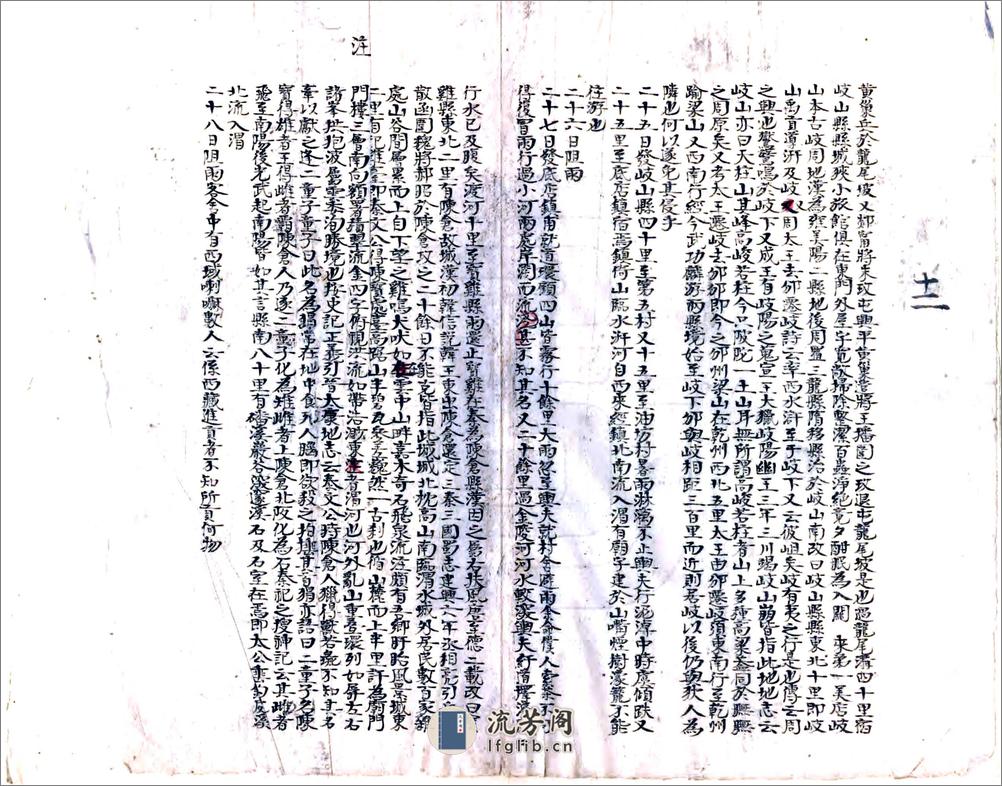 十二
黃巢兵於龍尾坡又郊暫將朱玫屯興平黃巢營將王播圍之玫退屯龍尾坡是也過龍尾溝四十里宿
岐山縣縣城狹小旅館俱在東門外屋宇寬敞掃除整潔百蟲淨絕竟夕酣眠為入關 來第一美店岐
山本古岐周地漢為雍美陽二縣地後周置三龍縣隋移縣治於岐山南改曰岐山縣縣東北十里即岐
山禹貢導汧及岐又周大王去邠遷岐詩云率西水滸至于岐下又云彼岨矣岐有夷之行是也傳云周
之興也鸑鷟鳴於岐下又成王有岐陽之蒐宣王大獵岐陽幽王三年三川竭岐山崩皆指此地地志云
岐山亦曰天柱山其峰高峻若柱今只陂陀一土山耳無所謂高峻若柱者山上多種高粱蓋同於膴膴
之周原矣又考太王遷岐去邠邠即今之邠州梁山在乾州西北五里太王由邠遷岐須東南行至乾州
踰梁山又西南行經今武功麟游兩縣境始至岐下邠與岐相距三百里而近則居岐以後仍與狄人為
隣也何以遂免其侵乎
二十五日發岐山縣四十里至第五村又十五里至油坊村暮雨淋漓不止輿夫行泥淖中時虞傾跌又
二十五里至底店鎮宿焉鎮倚山臨水汧河自西來經鎮北南流入渭有廟宇建於山嘴煙樹濛籠不能
往游也
二十六日阻雨
二十七日發底店鎮甫就道環顧四山皆霧行十餘里大雨忽至輿夫就村舍避雨余命僕人
復冒雨行過小河兩處岸闊而流甚不知其名又二十餘里過金陵河河水較深輿夫紆道擇淺
注
行水已及腹矣渡河十里至寶雞縣雨還止寶雞在秦為陳倉縣漢因之唐至德二載改曰寶
雞縣東北二里有陳倉故城漢初韓信說韓王東出陳倉還定三秦三國蜀志建興六年丞相亮引兵
散關圍魏將郝昭於陳倉攻之二十餘日不能克皆指此城城北枕高山南臨渭水城外居民數百家
處山谷間層累而上自下望之雞鳴犬吠如在雲中山畔嘉木奇石飛泉流注頗有吾鄉盱眙風景城東
二里有祀雞臺即秦文公得陳寶處臺高踞山半望之翠巍然一古刹也循山麓而上半里許為廟門
門樓三層南向額署指點流金四字俯視渠流如帶浩瀚東注者渭河也河外亂山重叠環列如屏左右
諸峯拱抱波
牽以獻之逢二童子童子曰此名為媦常在地中食死人腦即欲殺之拍捶其首媦亦語曰二童子名陳
寶得雄者王得雌者霸陳倉人乃逐二童子化為雉雌者上陳倉北阪化為石秦祀之搜神記云其雄者
飛至南陽後光武起南陽皆如其言縣南八十里有磻溪巖谷深邃溪石及石室在焉即太公垂釣處溪
北流入渭
二十八日阻雨客舍中有西域喇嘛數人云係西藏進貢者不知所貢何物
流芳阁
lfglib.cn